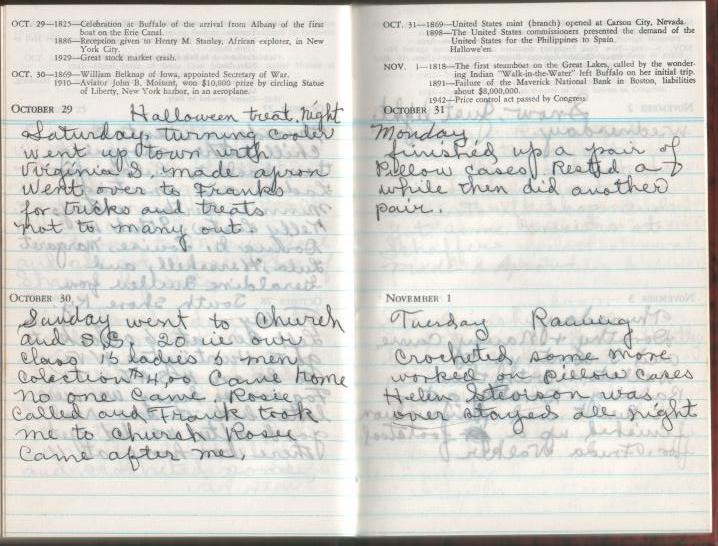 OCT. 29—1825—Celebration at Buffalo of the arrival from Albany of the first
boat on the Erie Canal.
1886—Reception given to Henry M. Stanley, African explorer, in New
York City.
1929—Great stock market crash.
OCT. 30—1869—William Belknap of Iowa, appointed Secretary of War.
1910—Aviator John B. Moisant, won $10,000 prize by circling Statue
of Liberty, New York harbor, in an aeroplane.
OCTOBER 29
Halloween treat. night
Saturday, turning cooler
went up town with
Virginia S. made apron
Went over to Franks
for tricks and treats
not to many out.
OCTOBER 30
Sunday went to Church
and S.S. 20 in our
class 15 ladies 5 men
Colection $4.00 Came home
no one came. Rosie
called and Frank took
me to church Rosie
came after me.
OCT. 31—1869—United States mint (branch) opened at Carson City, Nevada.
1898—The United States commissioners presented the demand of the
United States for the Philippines to Spain.
Hallowe'en.
NOV. 1—1818—The first steamboat on the Great Lakes, called by the wonder-
ing Indian "Walk-in-the-Water" left Buffalo on her initial trip.
1891—Failure of the Maverick National Bank in Boston, liabilities
about $8,000,000.
1942—Price control act passed by Congress.
OCTOBER 31
Monday
finished up a pair of
Pillow cases Rested a
while then did another
pair.
NOVEMBER 1
Tuesday Raining
Crocheted some more
worked on pillow cases
Helen Stevison was
over stayed all night